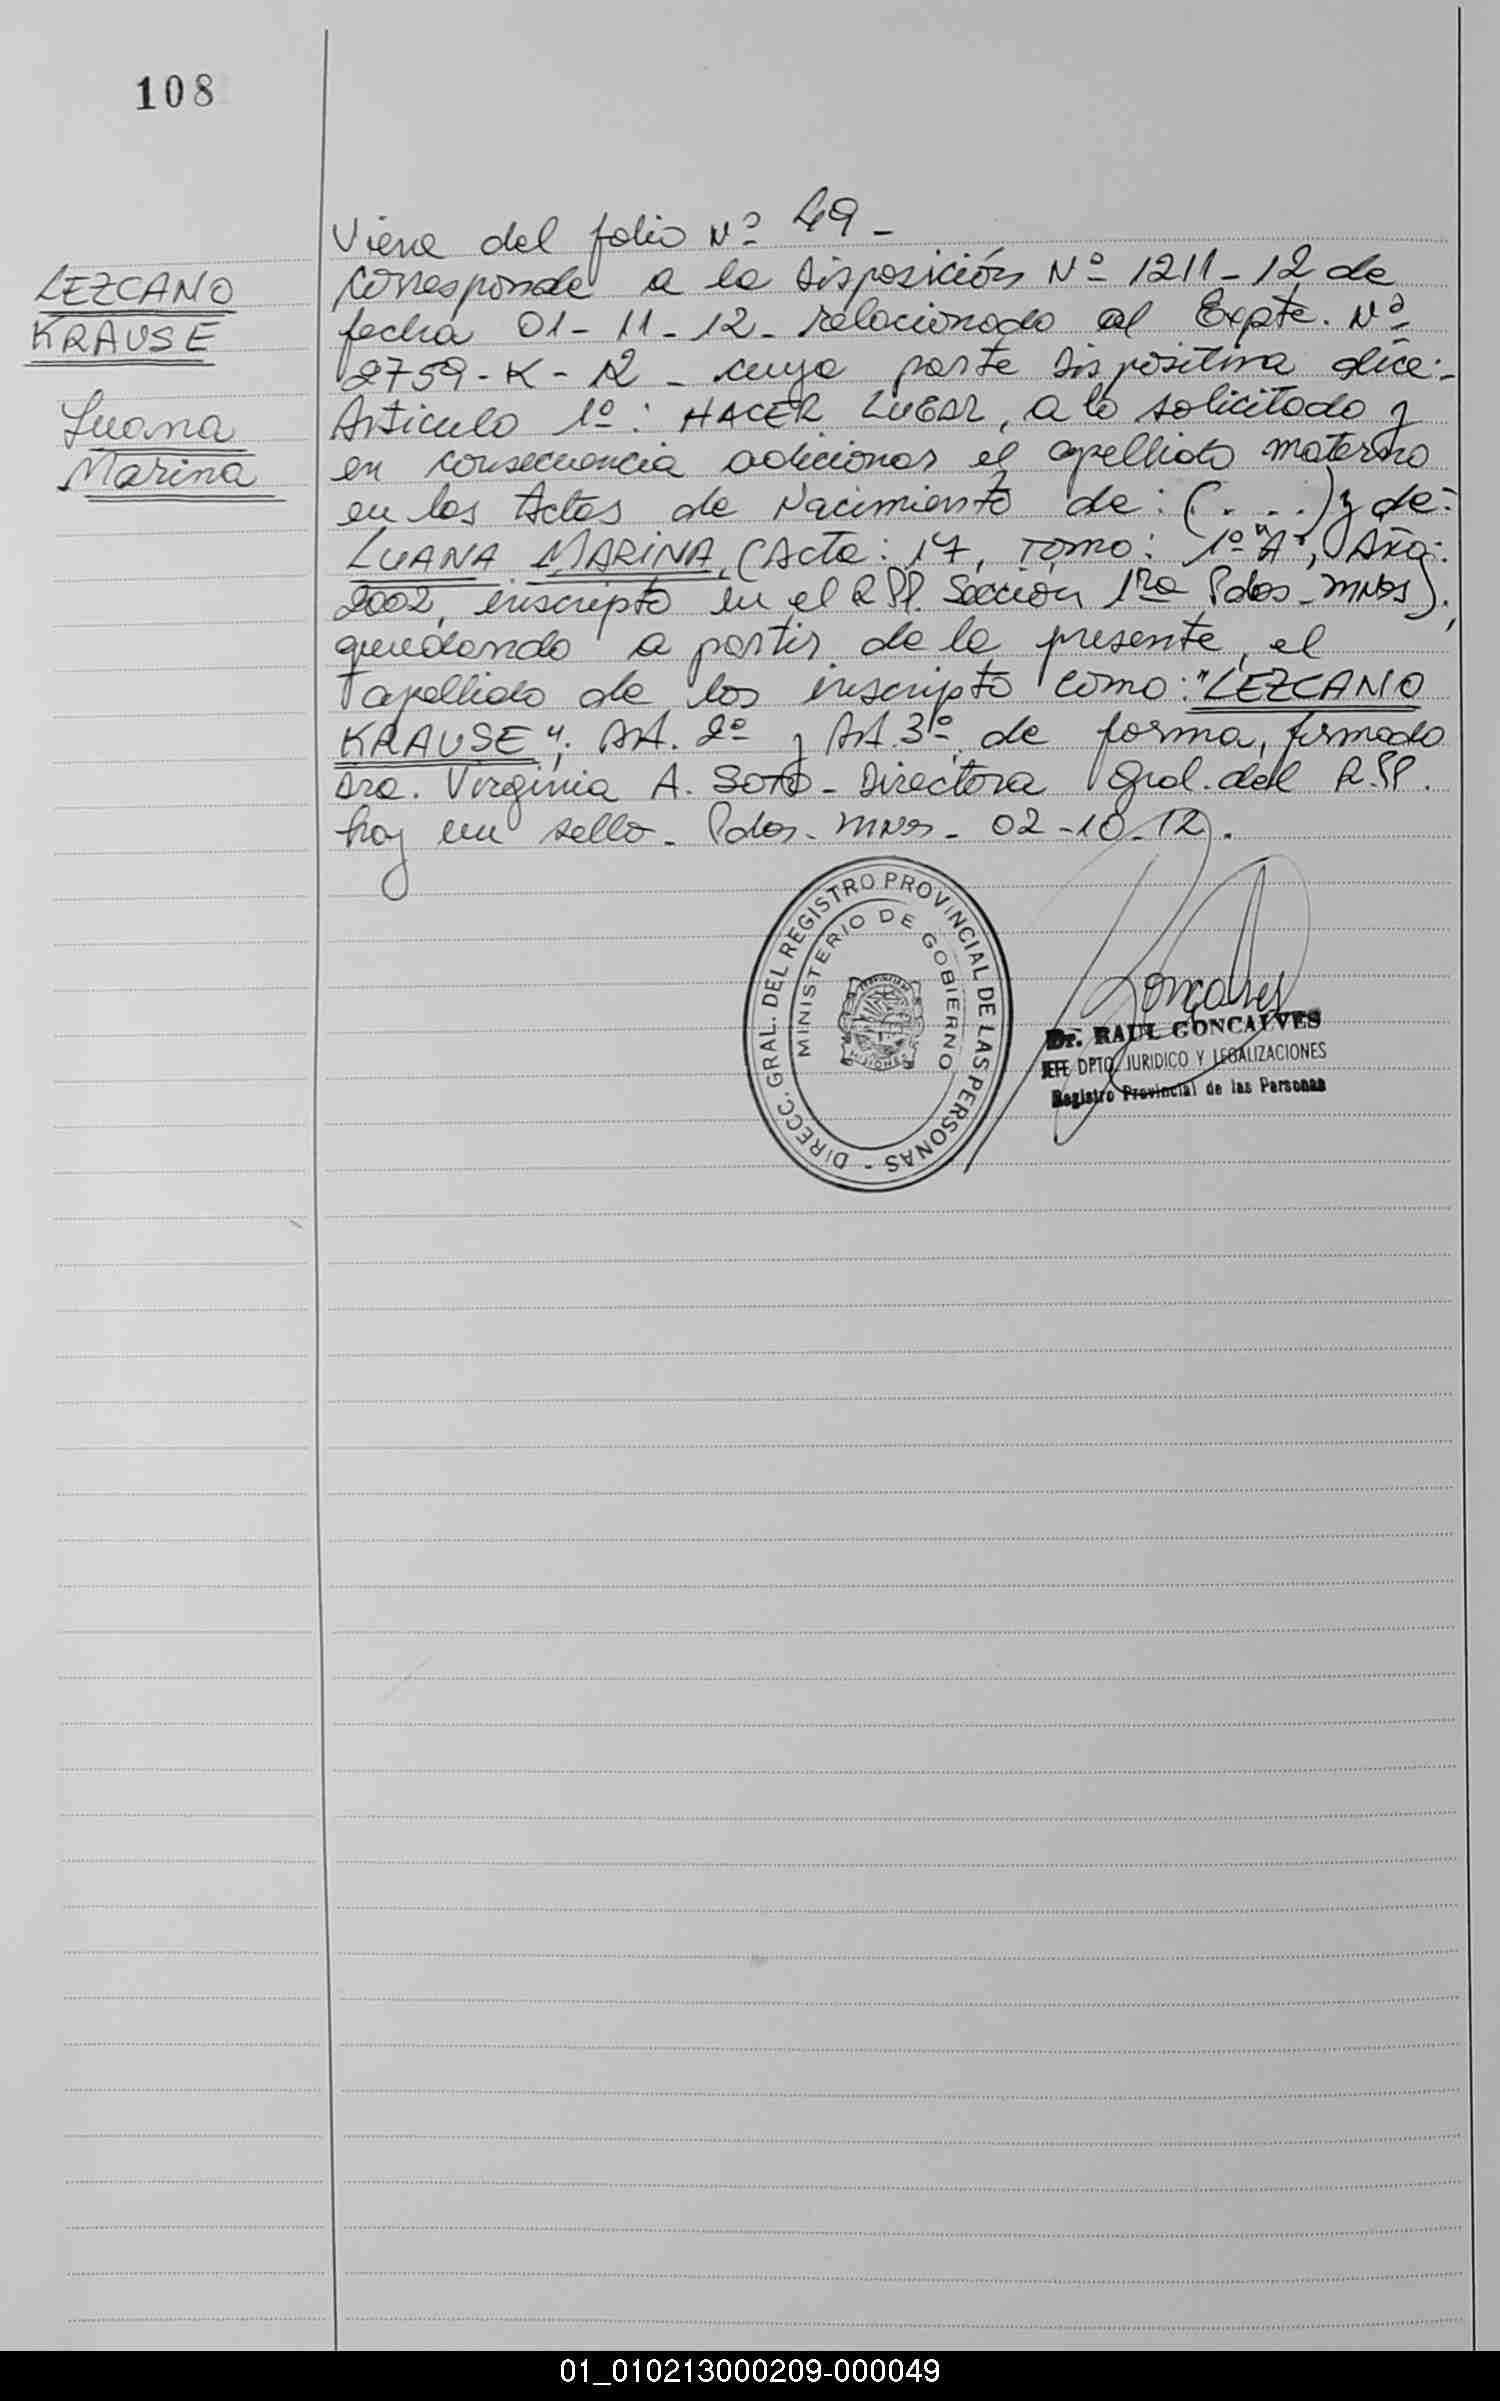 108
LEZCANO
KRAUSE
Luana
Marina
Viene del folio Nº 49 -
Corresponde a la Disposición Nº 1211-12 de
fecha 01-11-12- relacionado al Expte. Nº
2759-K-12 - cuya parte dispositiva dice:-
Artículo 1º: HACER LUGAR, a lo solicitado y
en consecuencia adicionar el apellido materno
en las Actas de Nacimiento de: (. . . .) y de:
LUANA MARINA, (Acta: 17, Tomo: 1º "A", Año:
2002, inscripto en el RPP. Sección 1ra Pdas-Mnes).,
quedando a partir de la presente, el
apellido de los inscripto como: "LEZCANO
KRAUSE". Art. 2º y Art. 3º de forma, firmado
Dra. Virginia A. Soto - Directora Gral. del R.PP.
hay un sello - Pdas - Mnes - 02-10-12.
DIRECC. GRAL. DEL REGISTRO PROVINCIAL DE LAS PERSONAS -
MINISTERIO DE GOBIERNO
MISIONES
Goncalves
Dr. RAUL GONCALVES
JEFE DPTO. JURIDICO Y LEGALIZACIONES
Registro Provincial de las Personas
01_010213000209-000049